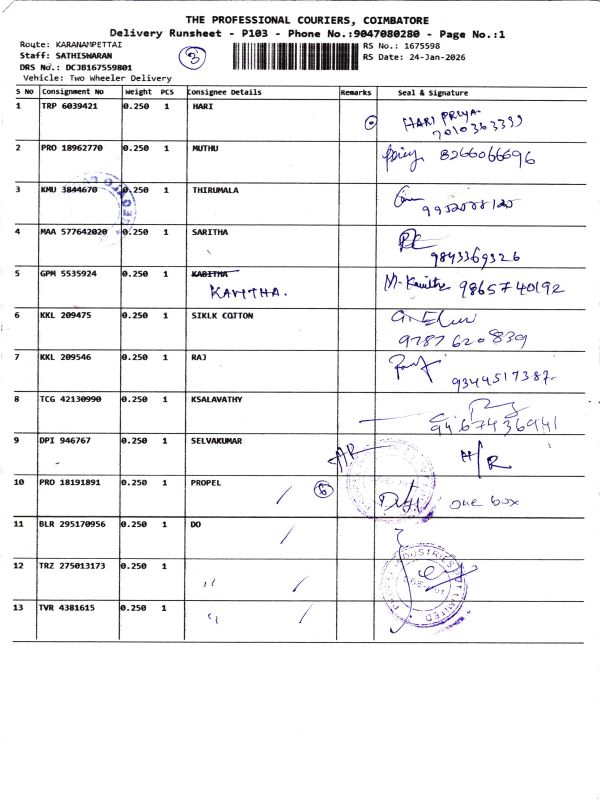 THE PROFESSIONAL COURIERS, COIMBATORE
Delivery Runsheet - P103 - Phone No.:9047080280 - Page No.:1
Route: KARANAMPETTAI
Staff: SATHISWARAN
DRS No.: DCJB167559801
Vehicle: Two Wheeler Delivery
3
RS No.: 1675598
RS Date: 24-Jan-2026
S No Consignment No Weight PCS Consignee Details Remarks Seal & Signature
1 TRP 6039421 0.250 1 HARI HARI PRIYA
7010363399
2 PRO 18962770 0.250 1 MUTHU 8266066696
3 KMU 3844670 0.250 1 THIRUMALA
4 MAA 577642020 0.250 1 SARITHA
9843369326
5 GPM 5535924 0.250 1 KABITHA M. Kavitha 9865740192
KAVITHA.
6 KKL 209475 0.250 1 SIKLK COTTON
9787620839
7 KKL 209546 0.250 1 RAJ
9344517387.
8 TCG 42130990 0.250 1 KSALAVATHY
9467436941
9 DPI 946767 0.250 1 SELVAKUMAR H/R
10 PRO 18191891 0.250 1 PROPEL / 6 one box
11 BLR 295170956 0.250 1 DO /
12 TRZ 275013173 0.250 1 ,, /
13 TVR 4381615 0.250 1 ,, /
INDUSTRIES
LIMITED